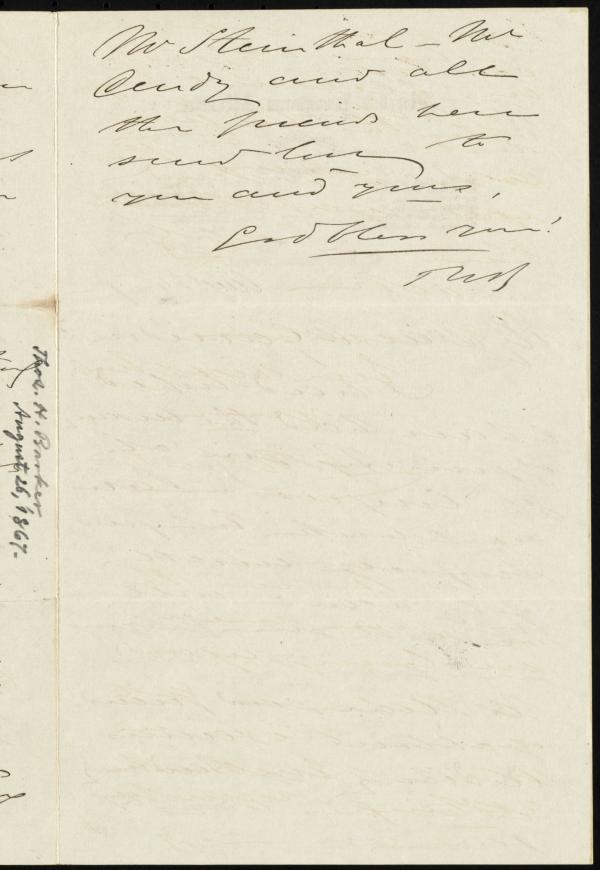 Mr Steinthal – Mr
and all
the friends here
send love to
you and yours,
God bless you!
THB
Thos. H. Barker
August 26, 1867.